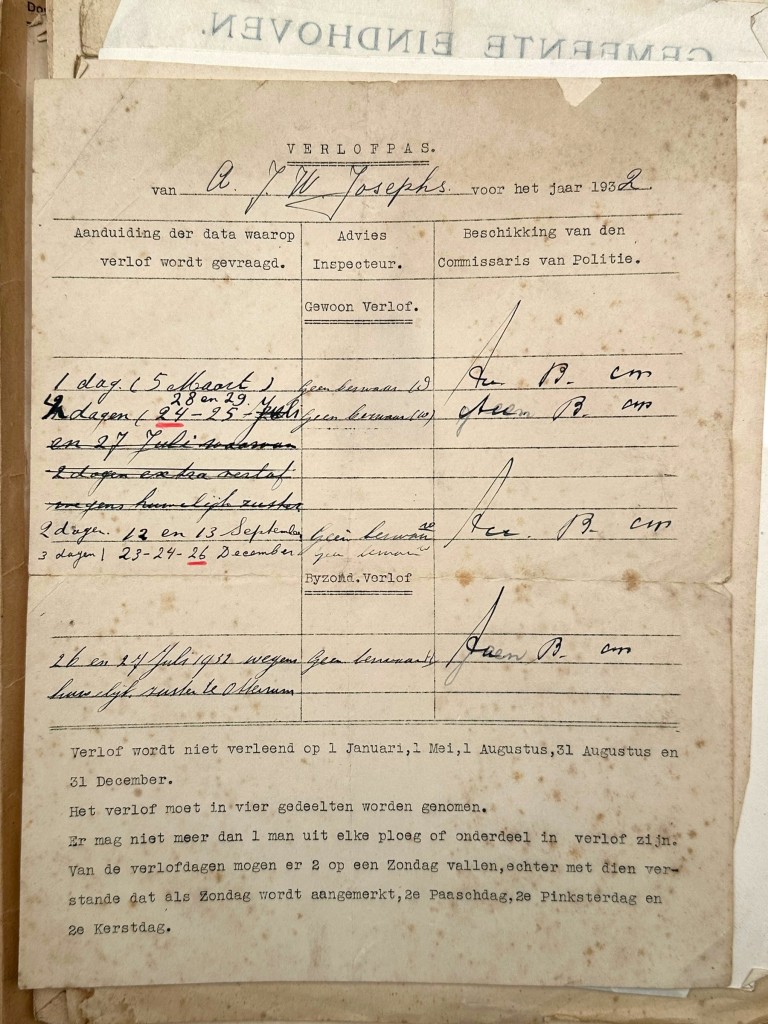 GEMEENTE EINDHOVEN.
VERLOFPAS.
van A. J. W. Josephs. voor het jaar 1932.
Aanduiding der data waarop verlof wordt gevraagd.
Advies Inspecteur.
Beschikking van den Commissaris van Politie.
Gewoon Verlof.
1 dag. (5 Maart) Geen bezwaar B-
28 en 29.
4 dagen (24-25- Juli Geen bezwaar B-
en 27 Juli waarvan
2 dagen extra verlof
wegens huwelijk zuster
2 dagen. 12 en 13 September Geen bezwaar B-
3 dagen 23-24-26 December Geen bezwaar
Byzond.Verlof
26 en 27 Juli 1932 wegens Geen bezwaar B-
huwelijk zuster te
Verlof wordt niet verleend op 1 Januari,1 Mei,1 Augustus,31 Augustus en
31 December.
Het verlof moet in vier gedeelten worden genomen.
Er mag niet meer dan 1 man uit elke ploeg of onderdeel in verlof zijn.
Van de verlofdagen mogen er 2 op een Zondag vallen,echter met dien ver-
stande dat als Zondag wordt aangemerkt,2e Paaschdag,2e Pinksterdag en
2e Kerstdag.